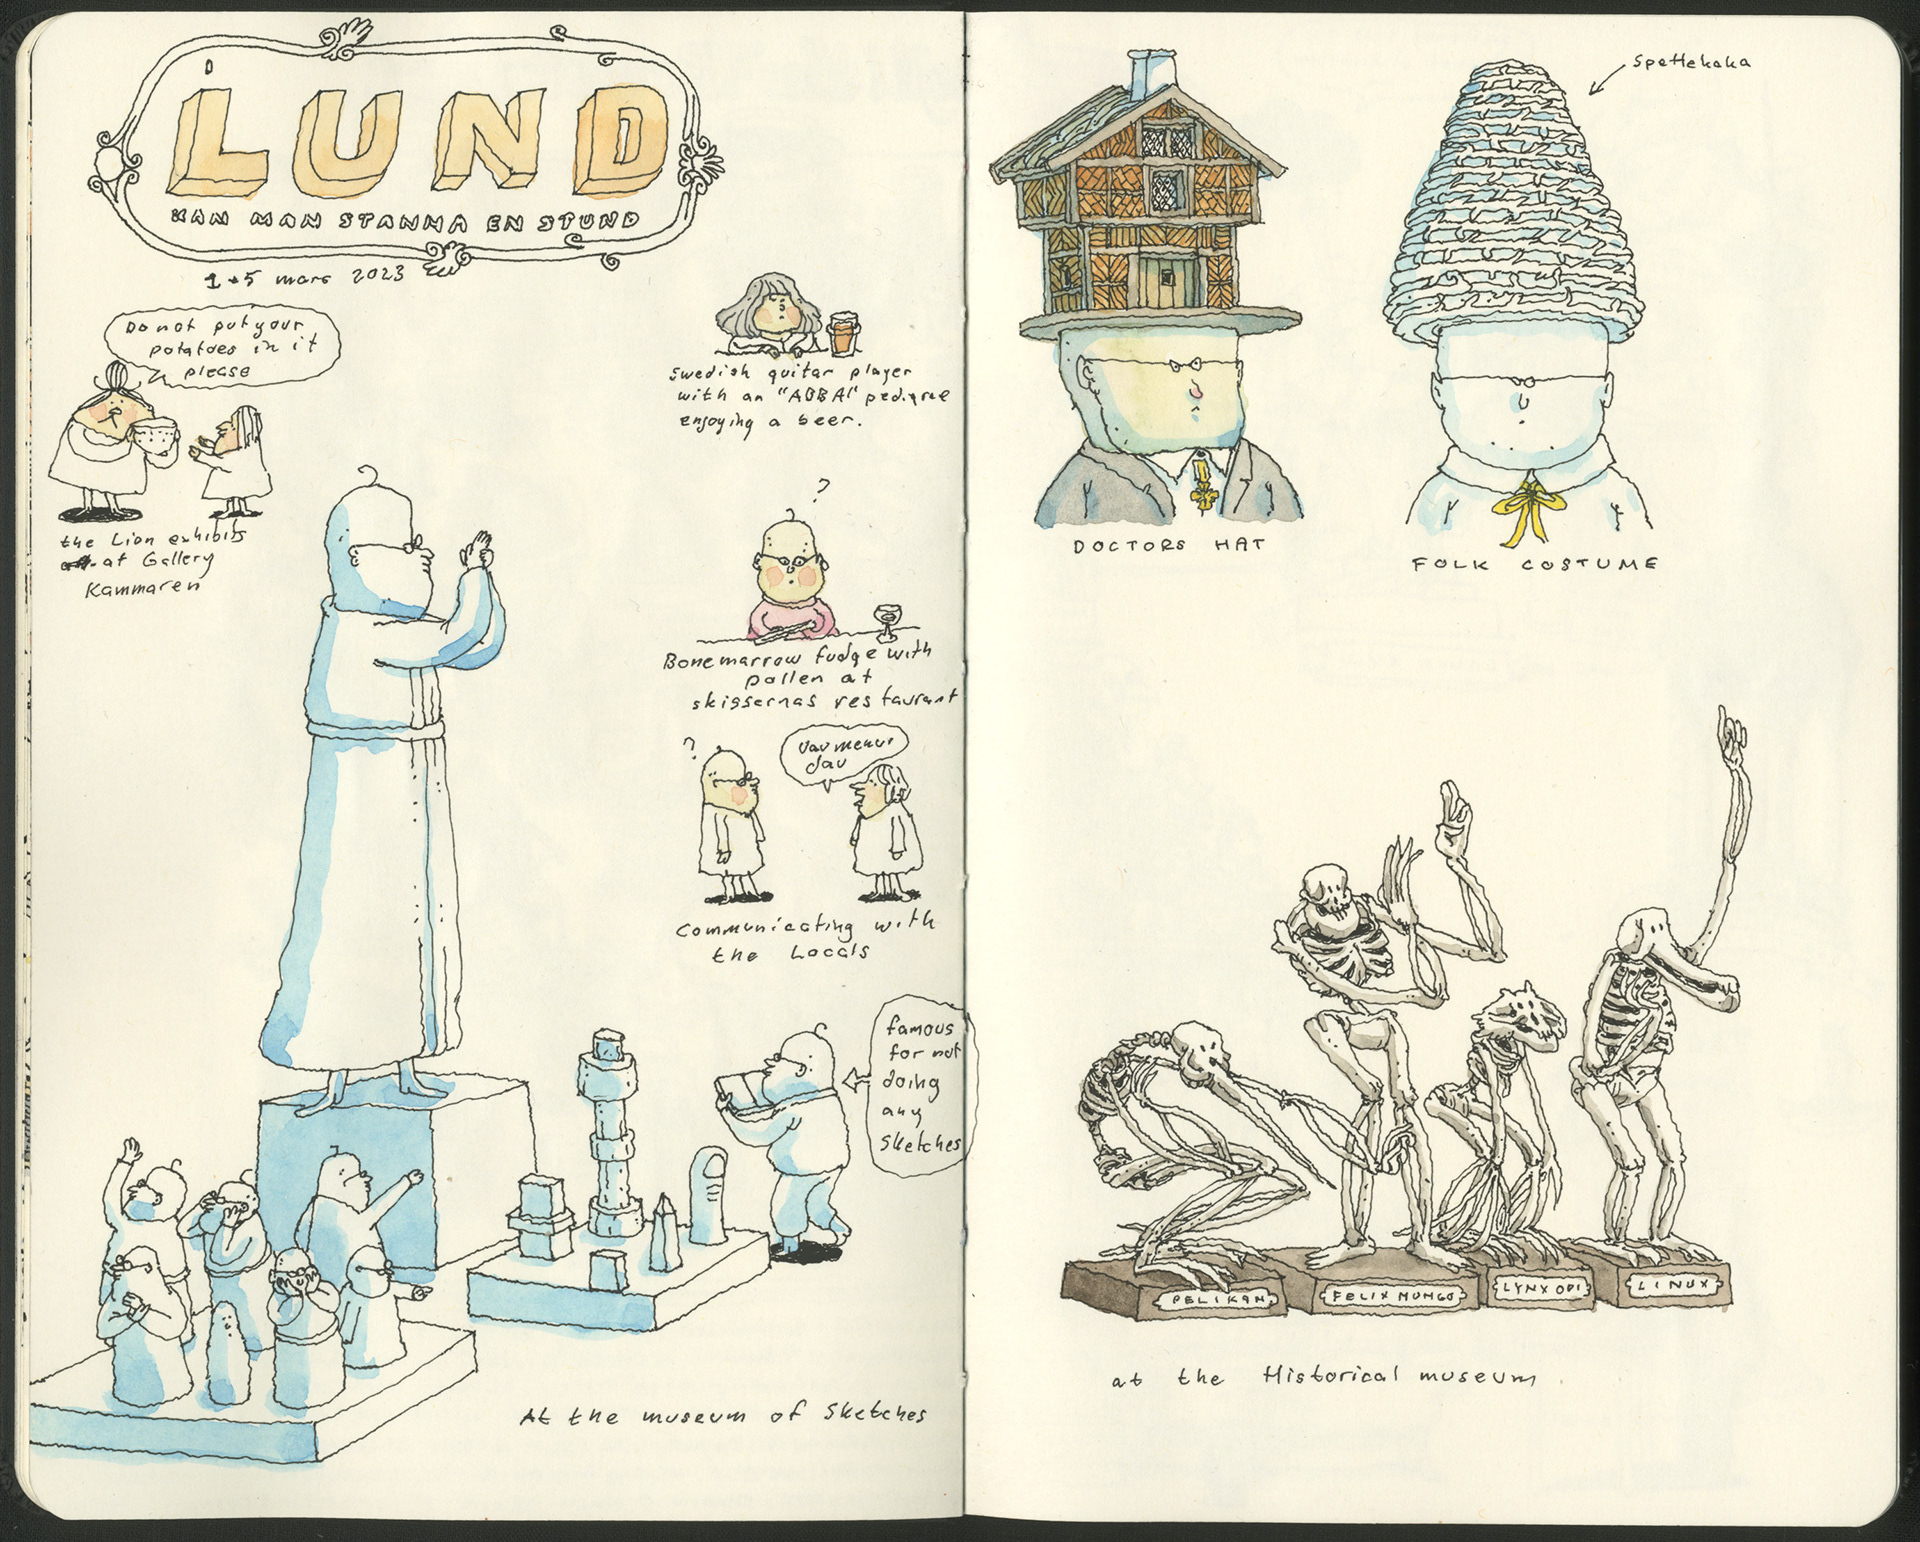 i
LUND
KAN MAN STANNA EN STUND
1-5 mars 2023
Do not put your
potatoes in it
please
the Lion exhibits
at Gallery
Kammaren
Swedish guitar player
with an "ABBA" pedigree
enjoying a beer.
?
Bonemarrow fudge with
pollen at
skissernas restaurant
?
dav
Communicating with
the Locals
famous
for not
doing
any
sketches
At the museum of Sketches
Spettekaka
DOCTORS HAT
FOLK COSTUME
PELIKAN
FELIX MUNGO
LYNX ODI
LINUX
at the Historical museum